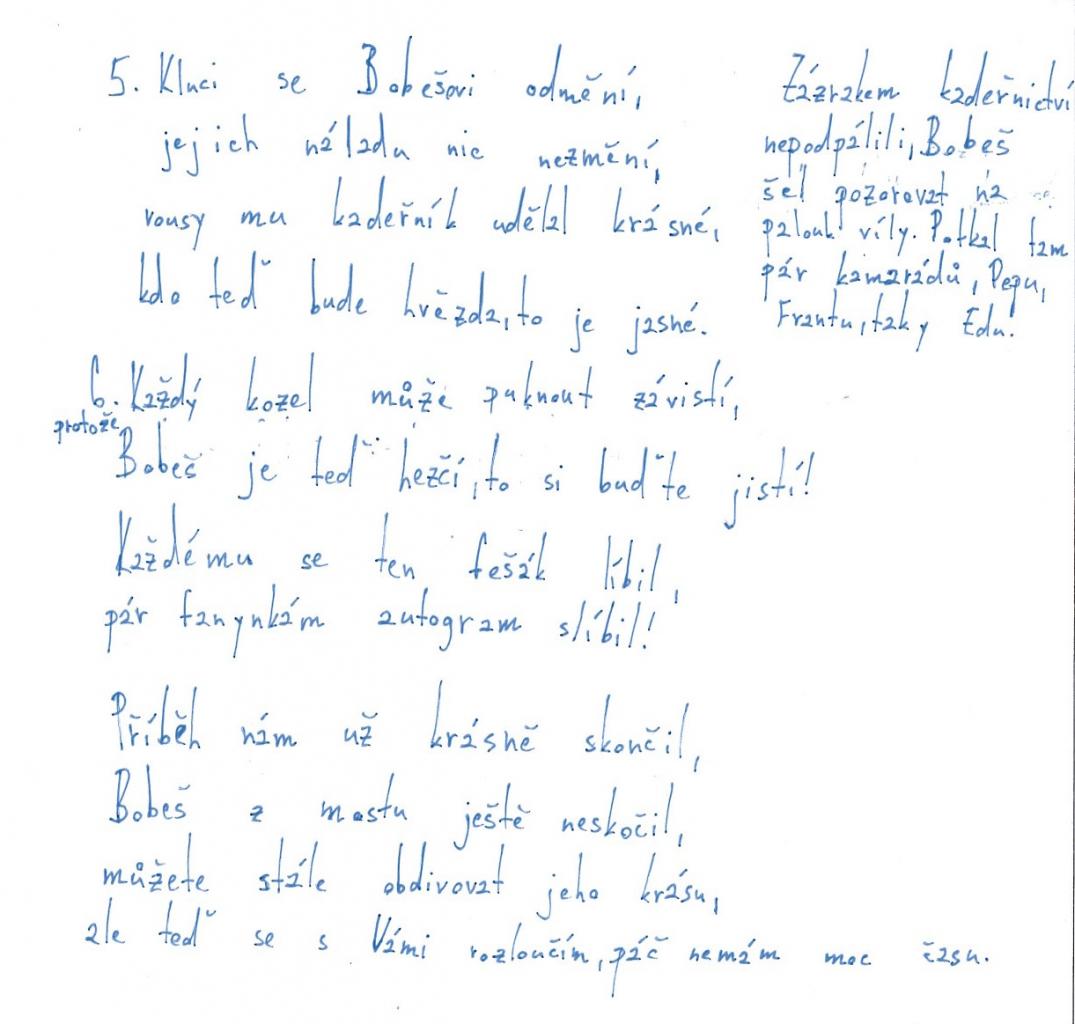 5. Kluci se Bobešovi odmění,
jejich náladu nic nezmění,
vousy mu kadeřník udělal krásné,
kdo teď bude hvězda, to je jasné.
6. Každý kozel může puknout závistí,
protože
Bobeš je teď hezčí, to si buďte jistí!
Každému se ten fešák líbil,
pár fanynkám autogram slíbil!
Příběh nám už krásně skončil,
Bobeš z mostu ještě neskočil,
můžete stále obdivovat jeho krásu,
ale teď se s Vámi rozloučím, páč nemám moc času.
Zázrakem kadeřnictví
nepodpálili, Bobeš
šel pozorovat na
palouk víly. Potkal tam
pár kamarádů, Pepu,
Frantu, taky Edu!